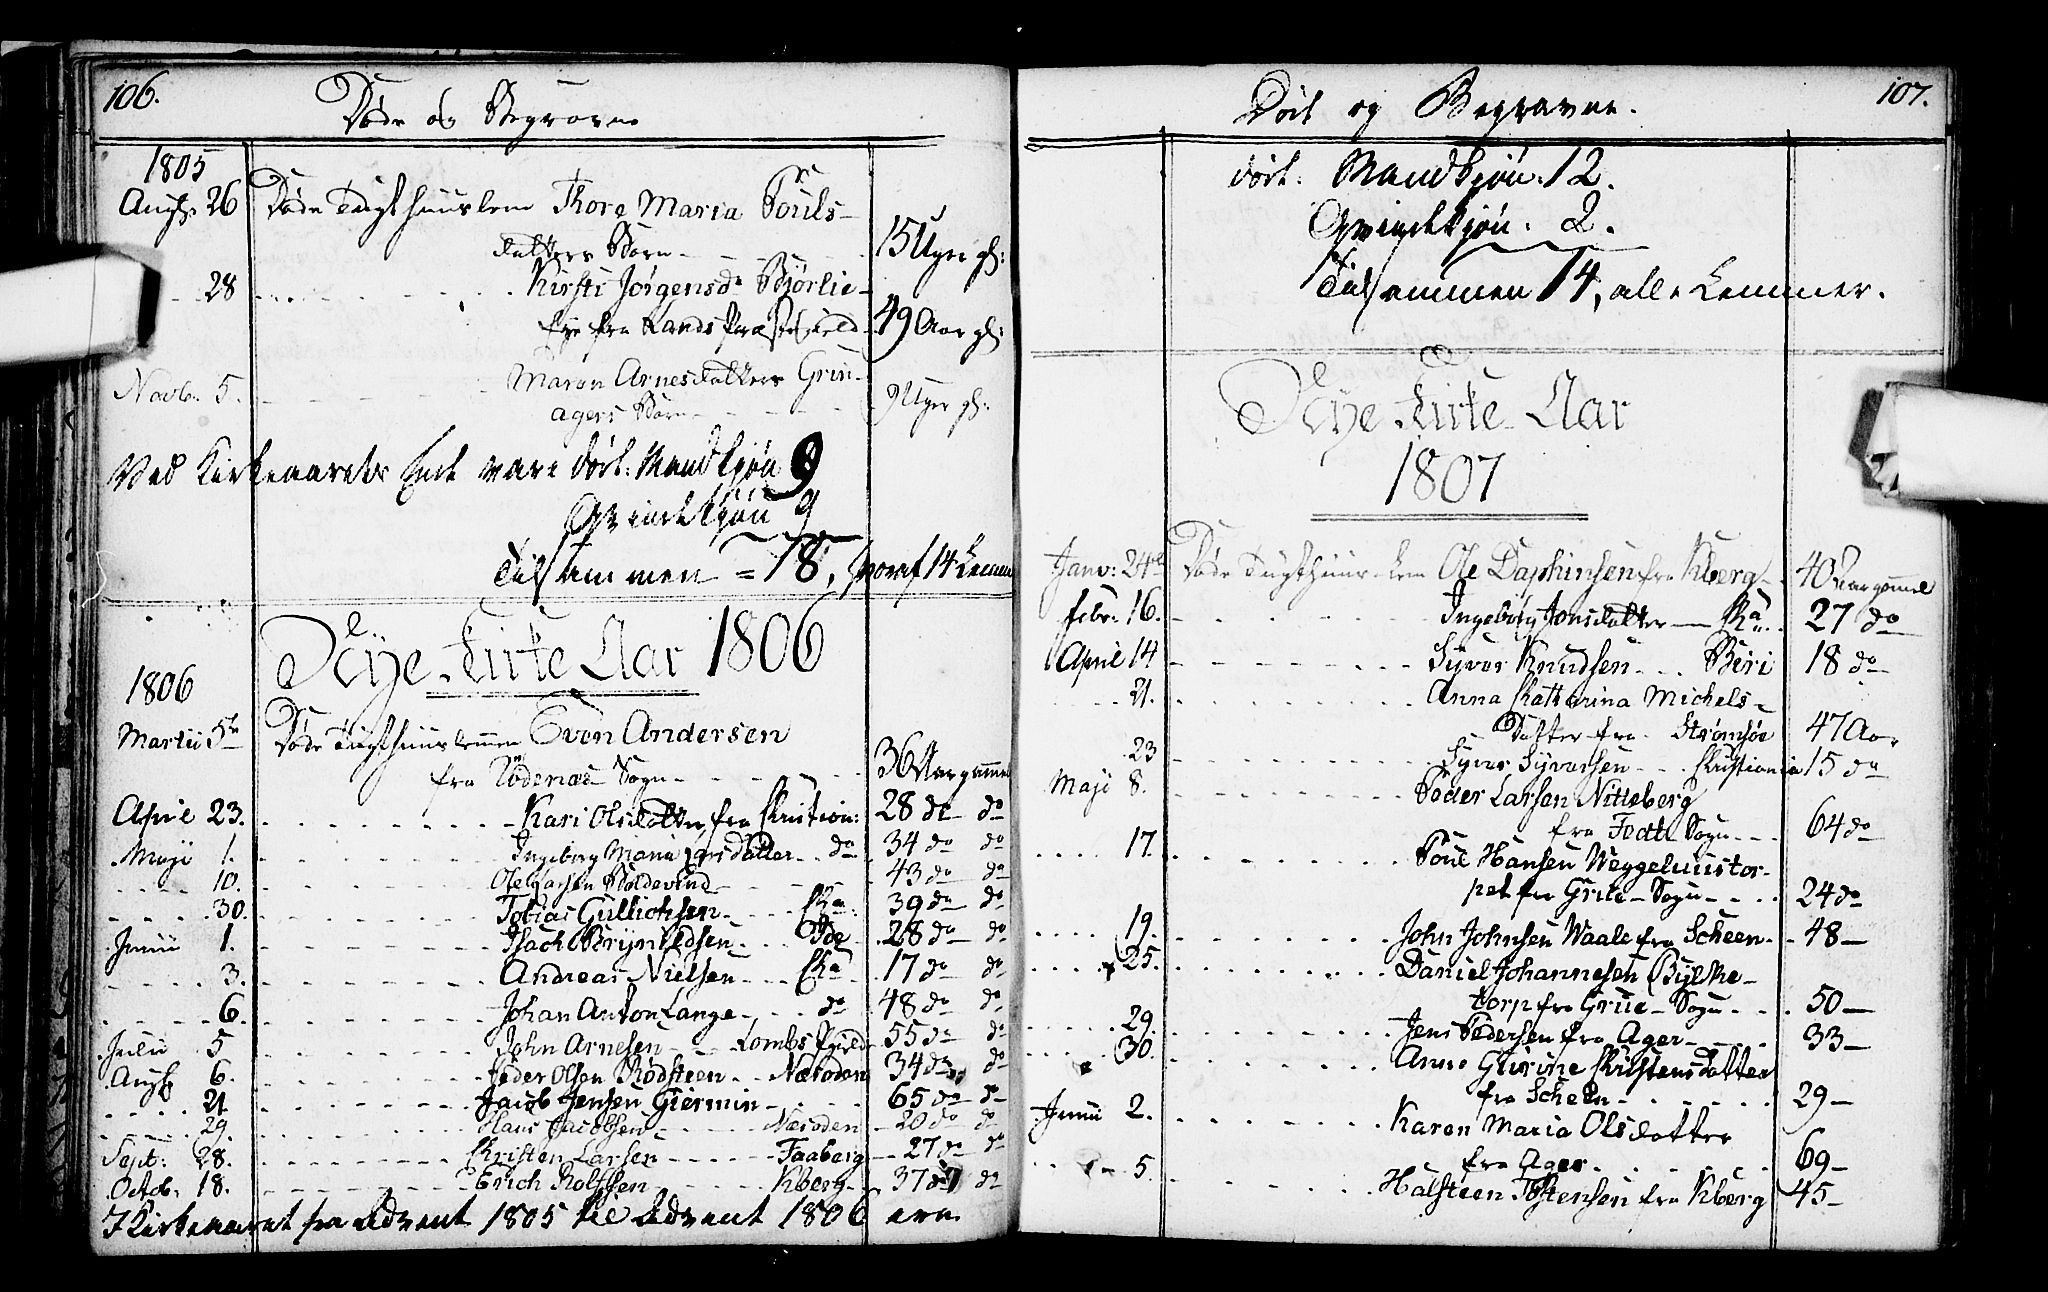 106.
Døde og Begravne
1805
Aug. 26 Døde Tugthuuslem Thore Maria Pouls-
datters Barn - - - 15 Uger gl:
28 - - - Kirsti Jørgensd. Bjørlie-
eje fra Lands Præstegield 49 Aar gl:
Novb. 5. - - - Maren Arnesdatters Grin-
agers Barn - - - 9 Uger gl:
Ved Kirkeaarets Ende vare døde: Mandkjøn 9
Qvindekjøn 9
Tilsammen = 18, hvoraf 14 Lemmer
Nye Kirke Aar 1806
1806
Martii 5te Døde Tugthuuslemmen Even Andersen
fra Rødenæs Sogn - - - 36 Aar gammel
April 23. - - - Kari Olsdatter fra Christian: 28 do do
Maji 1. - - - Ingeborg Maria Larsdatter - - do 34 do do
10. - - - Ole Larsen Boldevind - - - 43 do do
30. - - - Tobias Gullichsen - - - Chra: 39 do do
Junii 1. - - - Isach Brynildsen - - - Ide 28 do do
3. - - - Andreas Nielsen - - - Chra 17 do do
6. - - - Johan Anton Lange - - - do 48 do do
Julii 5 - - - John Arnesen - - - Lombs Pgield 55 do do
Augst 6. - - - Peder Olsen Rødsteen - - Næsodden 34 do do
21 - - - Jacob Jensen Giermin - - - 65 do do
29. - - - Hans Jacobsen - - - Næsoden 20 do do
Sept: 28. - - - Christen Larsen - - - Faaberg 27 do do
Octob. 18. - - - Erich Rolfsen - - - Kberg 37 do do
I Kirkeaaret fra Advent 1805 til Advent 1806 ere
107.
Døde og Begravne.
døde: Mandkjøn: 12.
Qvindekjøn: 2.
Tilsammen 14, alle Lemmer.
Nye Kirke Aar
1807
Janv: 24de Døde Tugthuus-Lem Ole Daphinsen fra Kberg - 40 Aar gamel
Febr. 16. - - - Ingeborg Jonsdatter - Chra. 27 do
April 14 - - - Syver Knudsen - - - Biri 18 do
21. - - - Anna Chatharina Michels-
Datter fra Strømsøe 47 Aar
23 - - - Syver Syversen - - - Christiania 15 do
Maji 8. - - - Peder Larsen Nitteberg
fra Fedt Sogn - - - 64 do
17. - - - Poul Hansen Weggeluustor-
pet fra Grue-Sogn - - - 24 do
19. - - - John Johnsen Waale fra Scheen - 48 -
25. - - - Daniel Johannesen Bylche-
torp fra Grue-Sogn - - - 50 -
29. - - - Jens Pedersen fra Ager - - - 33 -
30. - - - Anne Gurine Christensdatter
fra Scheen - - - 29 -
Junii 2. - - - Karen Maria Olsdatter
fra Ager - - - 69 -
5. - - - Halsteen Tostensen fra Kberg 45 -